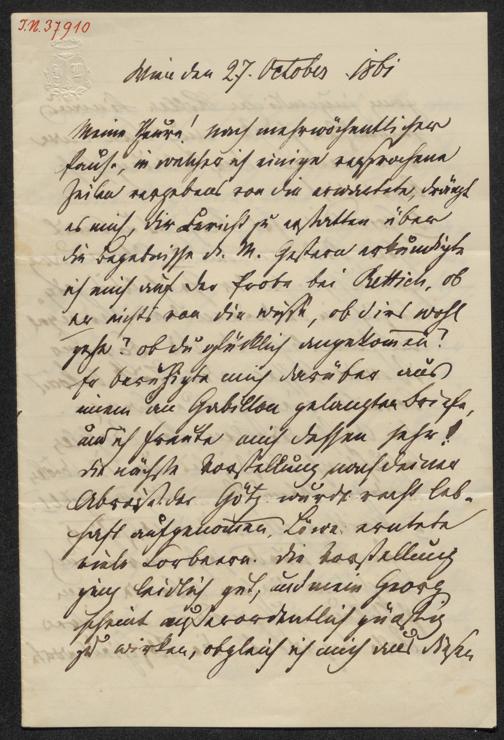 J.N. 37910
Wien den 27. October 1861
Meine Theure! Nach mehrwöchentlicher
Pause, in welcher ich einige versprochene
Zeilen vergebens von dir erwartete, drängt
es mich, dir Bericht zu erstatten über
die Begebnisse d. M. Gestern erkundigte
ich mich auf der Probe bei Rettich, ob
er nichts von dir wisse, ob dirs wohl
gehe? ob du glücklich angekommen?
Er beruhigte mich darüber aus
einem an Gabillon gelangten Briefe,
und ich freute mich dessen sehr!
Die nächste Vorstellung nach deiner
Abreise der Götz wurde recht leb-
haft aufgenommen, Löwe erntete
viele Lorbeern. Die Vorstellung
ging leidlich gut, und mein Georg
scheint außerordentlich günstig
zu wirken, obgleich ich mich aus diesen